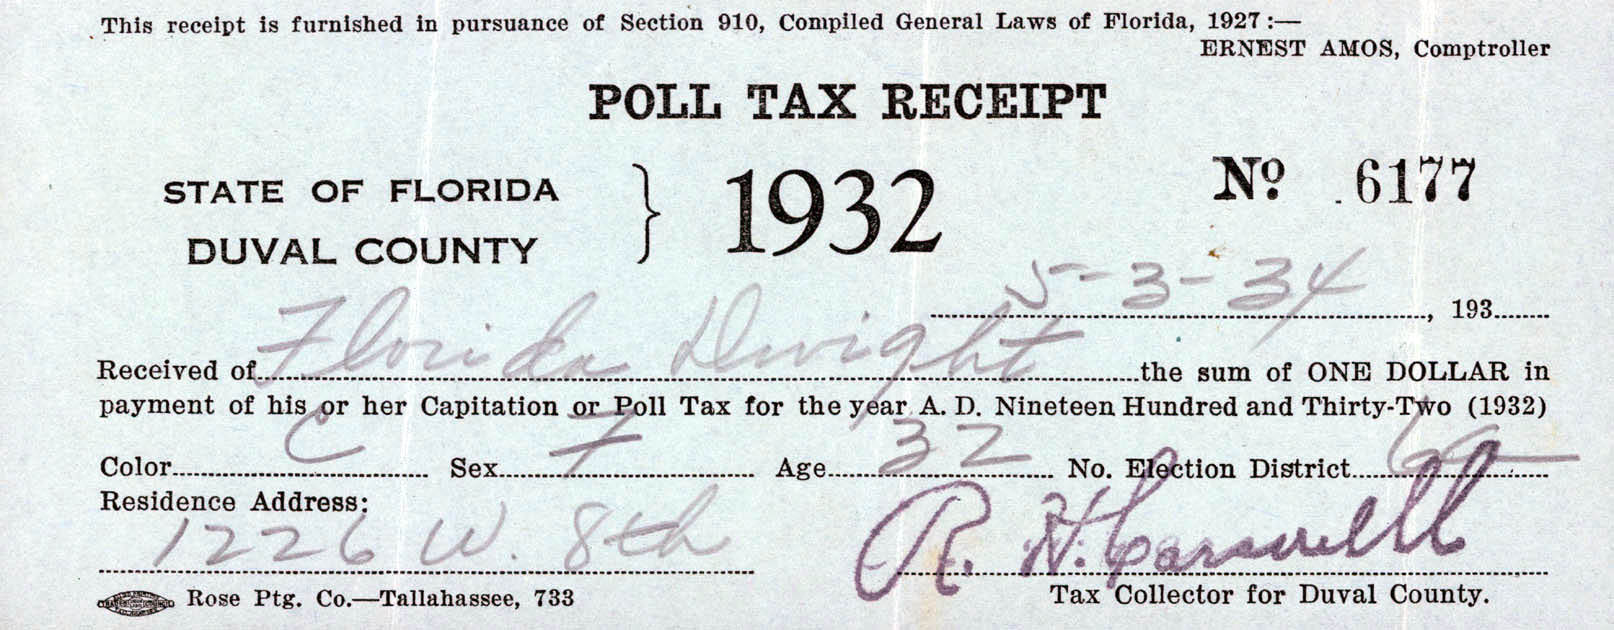 This receipt is furnished in pursuance of Section 910, Compiled General Laws of Florida, 1927:—
ERNEST AMOS, Comptroller
POLL TAX RECEIPT
STATE OF FLORIDA
DUVAL COUNTY } 1932 No. 6177
5-3-34, 193
Received of Florida Dwight the sum of ONE DOLLAR in
payment of his or her Capitation or Poll Tax for the year A. D. Nineteen Hundred and Thirty-Two (1932)
Color C Sex F Age 32 No. Election District 6a
Residence Address:
1226 W. 8th R. H. Carswell
Rose Ptg. Co.—Tallahassee, 733 Tax Collector for Duval County.